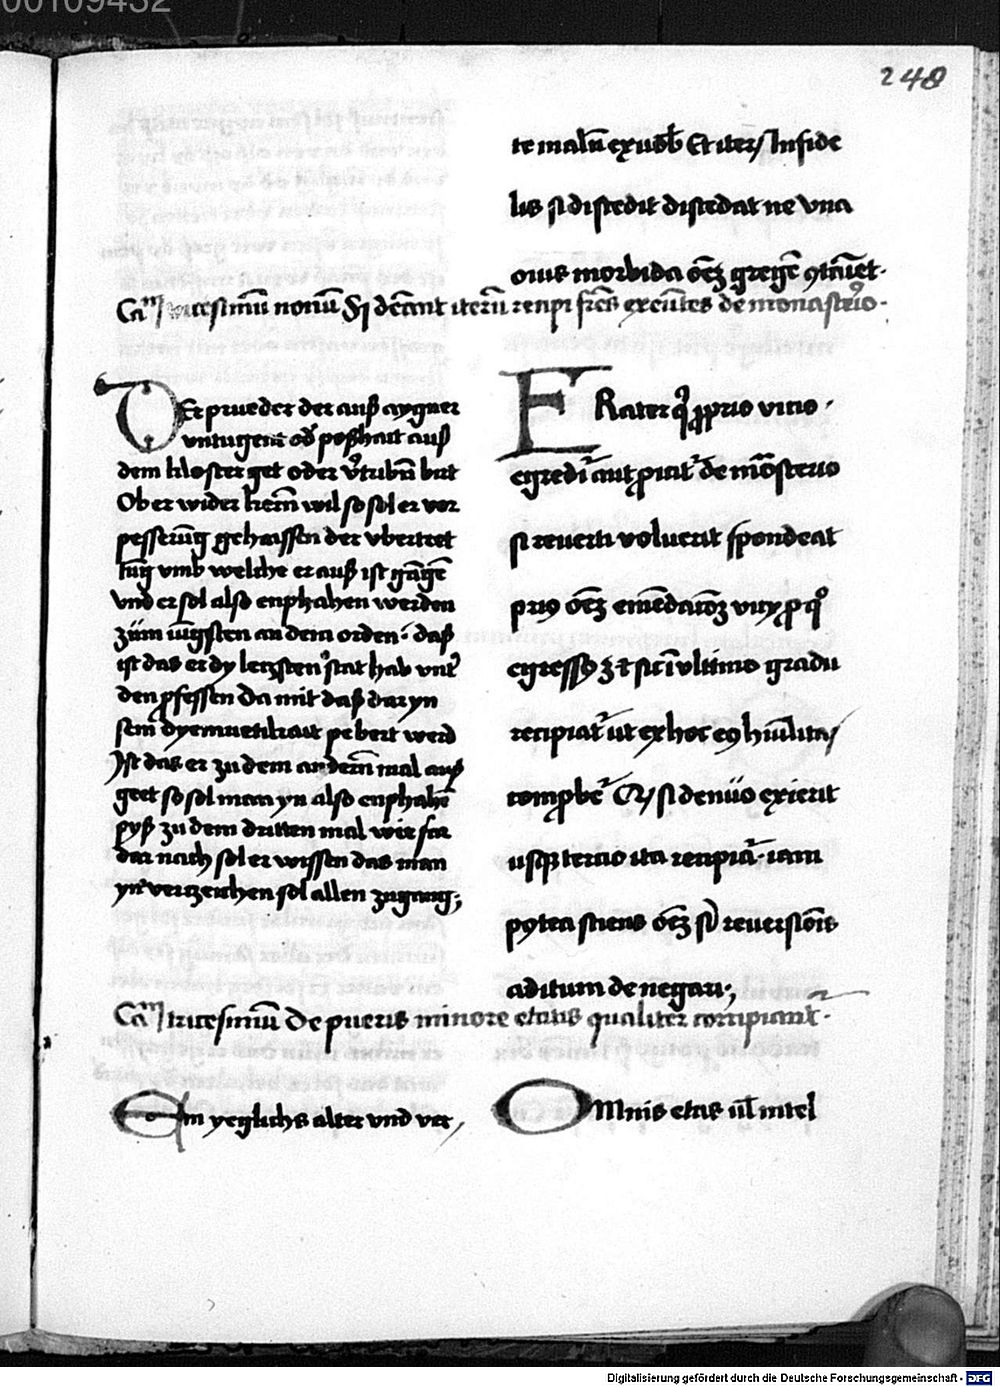 00109432
248
te malū ex uobꝭ Et iteꝝ Infide
lis si discedit discedat ne vna
ouis morbida oēꝫ gregē ꝯtaīet·
Caᵐ vicesimū nonū Si debeant iterū recipi fr̄es exeūtes de monasterio·
Der prueder der auß aygner
vntugent oď poßhait auß
dem kloster get oder v̾triben̄ birt
Ob er wider kem̄ wil so sol er vor
pesserūg gehaissen der vbertret
ung vmb welche er auß ist gāgē
vnd er sol also enphahen werden
züm iūgsten an dem orden· daß
ist das er dy letzsten stat hab vnt̾
den ꝓfessen Da mit daß dar yn
sein dyemuetikait pebert werd
Ist das er zu dem andern̄ mal auß
geet so sol man yn also enphahē
pyß zu dem dritten mal wie für
dar nach sol er wissen das man
yn verzeichen sol allen zugang;
FRater q̇ ꝓprio vicio·
egredit̾ aut ꝓicit̾ de mōsterio
si reuerti voluerit spondeat
prius oēꝫ emēdacōꝫ vicij ꝓ qͦ
egressus ē ⁊ sic ī vltimo gradu
recipiat̾ ut ex hoc eꝯ hūilitas
comprobet̾ Qꝫ si denūo exierit
usqꝫ tercio ita recipiat̾· iam
postea sciens oēꝫ sibi reuersiōis
aditum denegari;
Caᵐ tricesimū De pueris minore etatis qualiter corripiant̾·
Ein yeglichs alter vnd ver
OMnis etas ul̄ intel
Digitalisierung gefördert durch die Deutsche Forschungsgemeinschaft - DFG